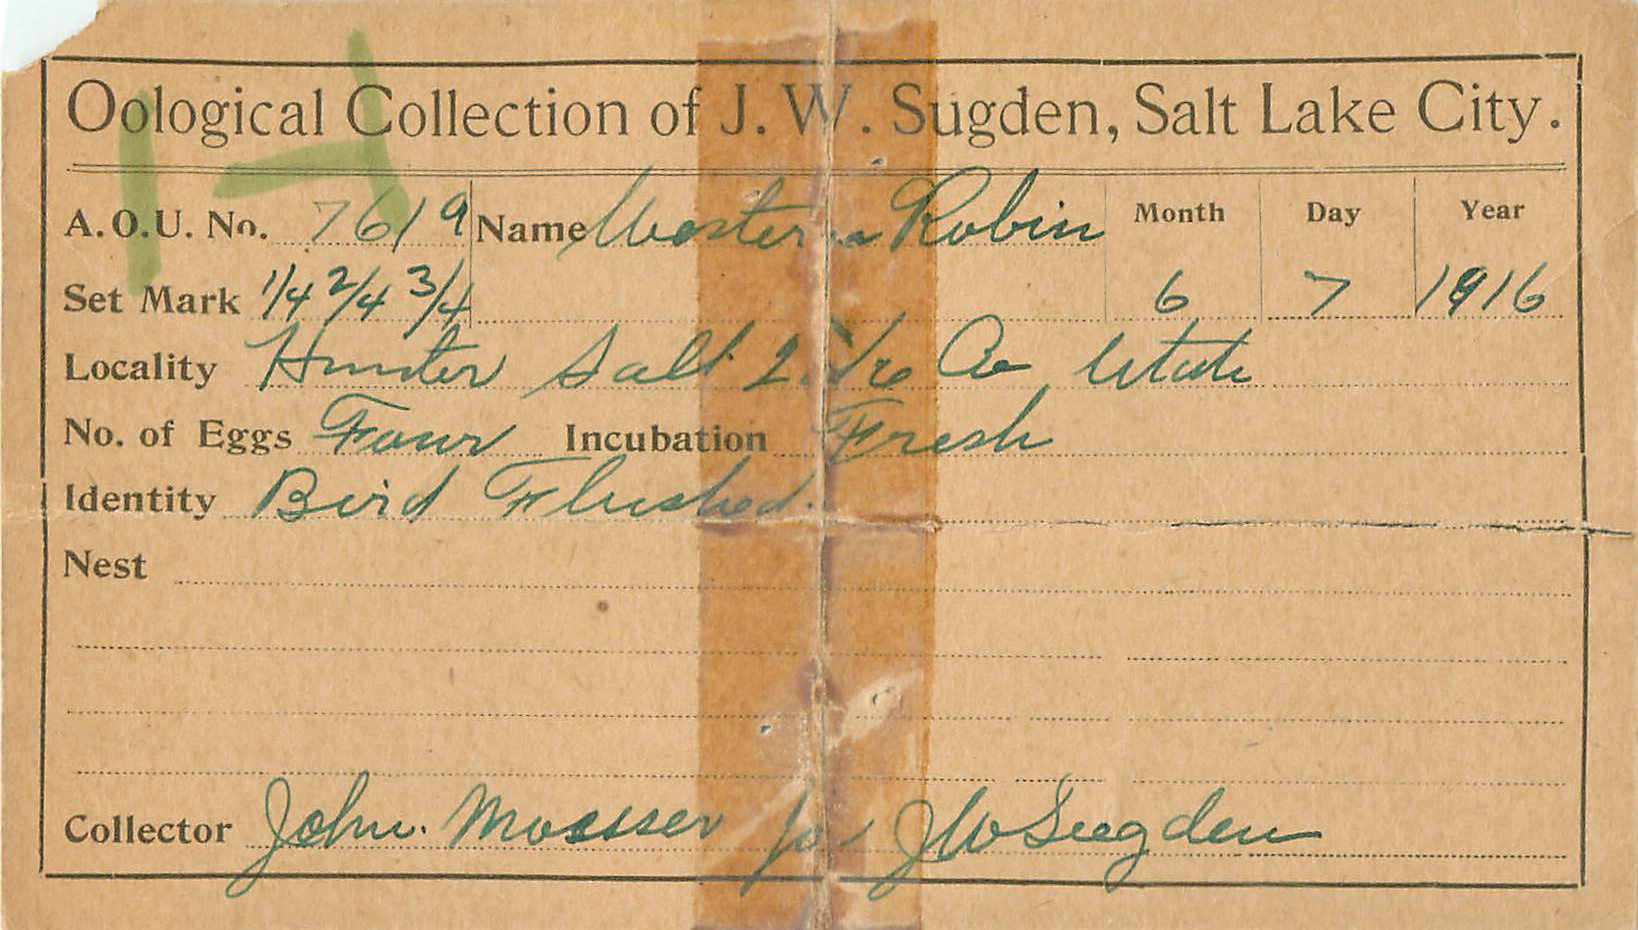 Oological Collection of J. W. Sugden, Salt Lake City.
A. O. U. No. 761 9 Name Western Robin Month Day Year
Set Mark 1/4 2/4 3/4 6 7 1916
Locality Hunter Salt Lake Co, Utah
No. of Eggs Four Incubation Fresh
Identity Bird Flushed.
Nest
Collector John. for J W Sugden